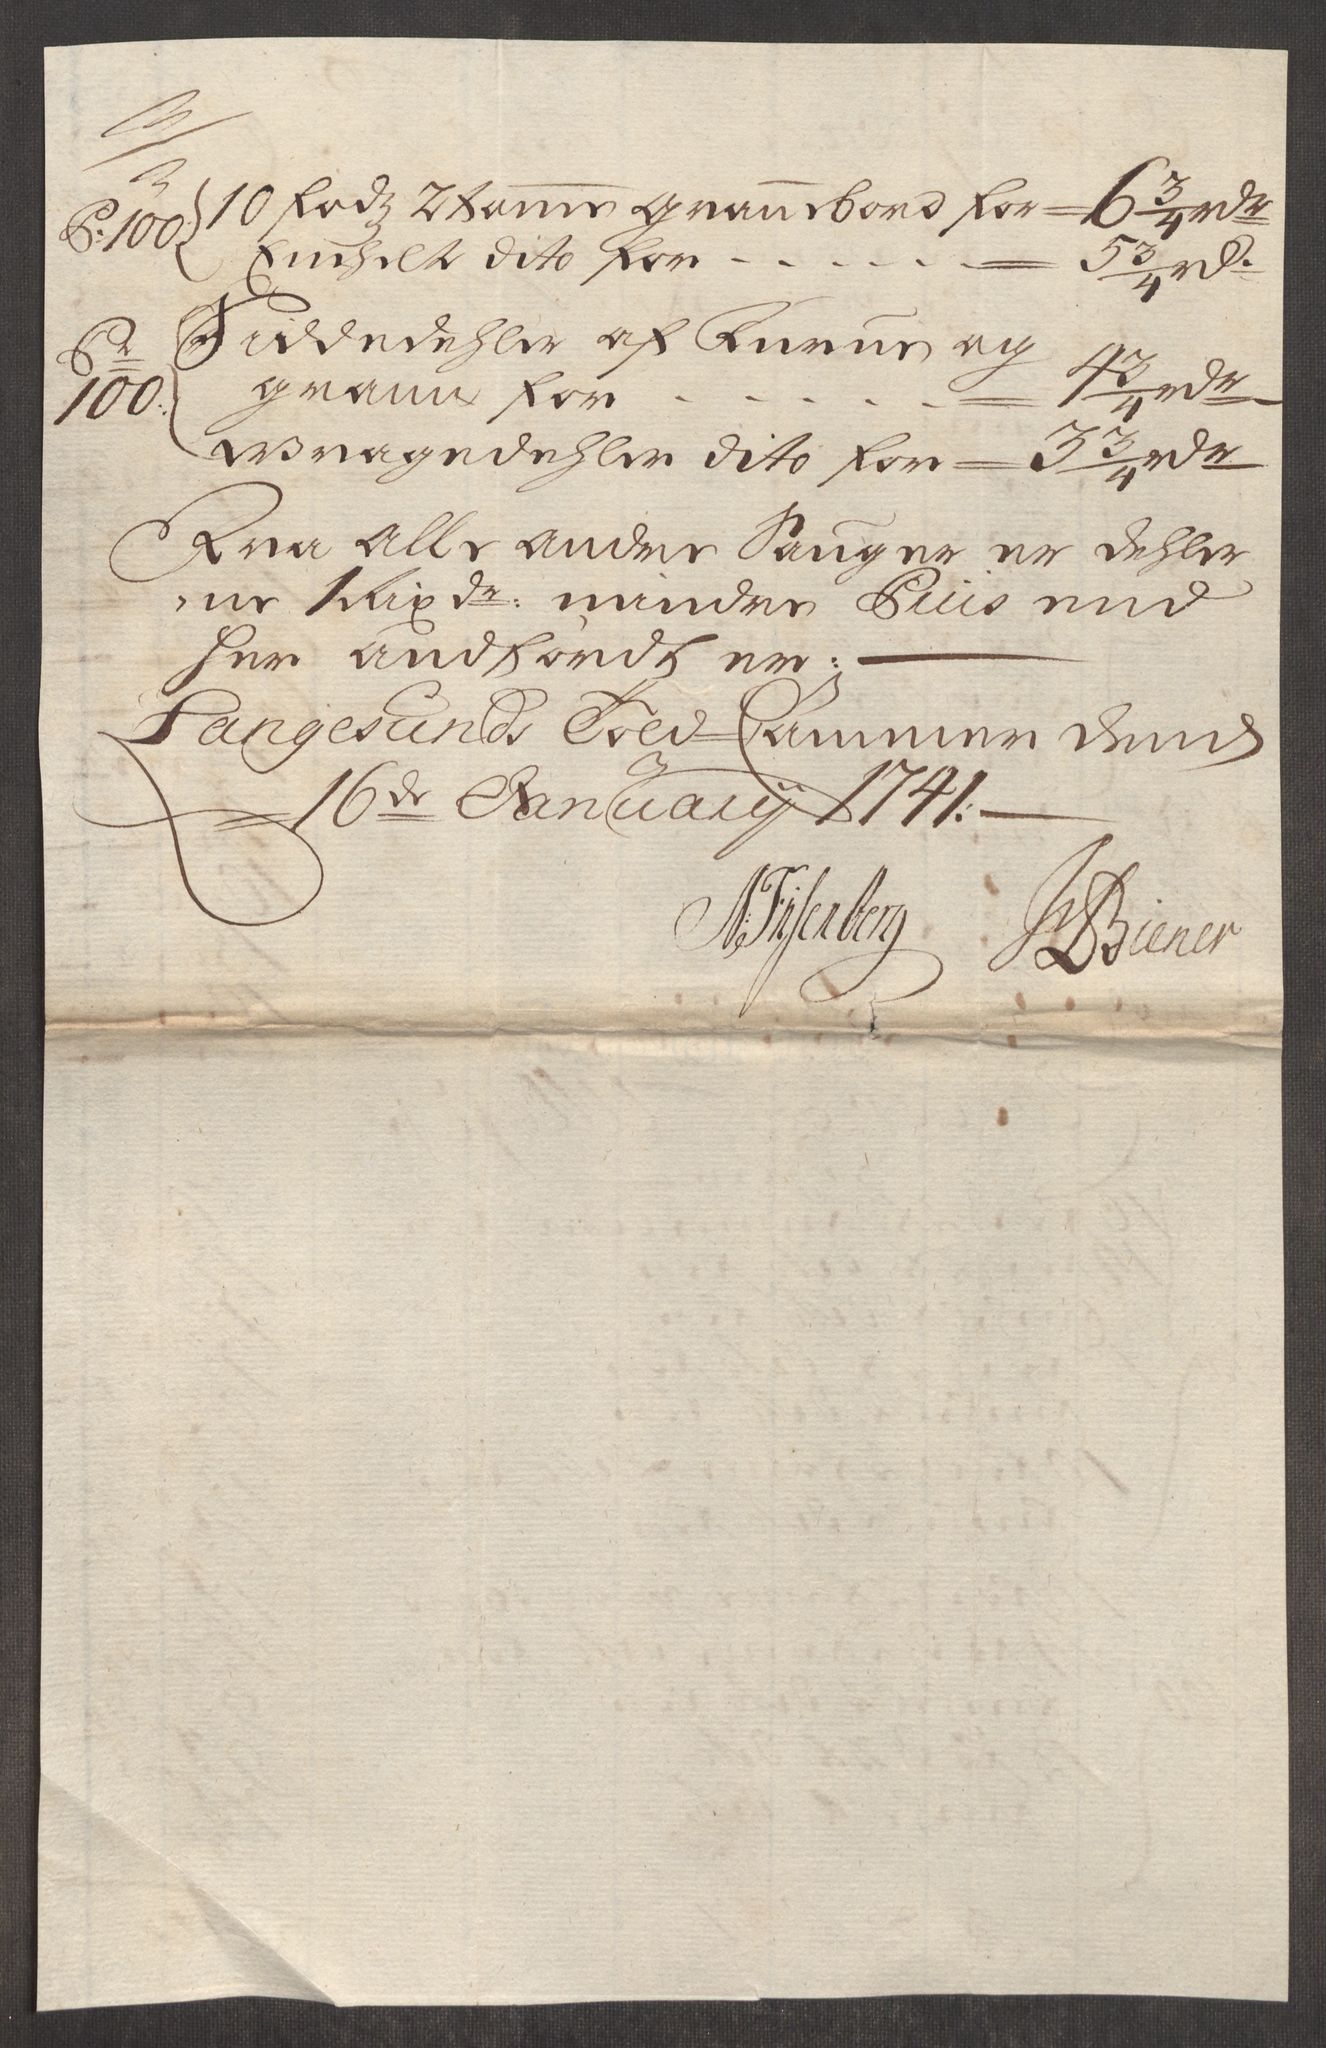 P: 100 10 fodz 2 tomme grannebord for = 6 3/4 rdr
Enchelt dito for - - - - - - = 5 3/4 rd.
Pr 100: Siddedehler af Furrue og
grann for - - - - - = 4 3/4 rdr
wragedehler dito for = 3 3/4 rdr
Fra alle andre Sauger er dehler
ne 1 Rixdr: mindre Priis end
her andfördt er: —
Langesunds Toed Cammer dend
= 16de January 1741: —
N: Fÿsenberg JDBiener